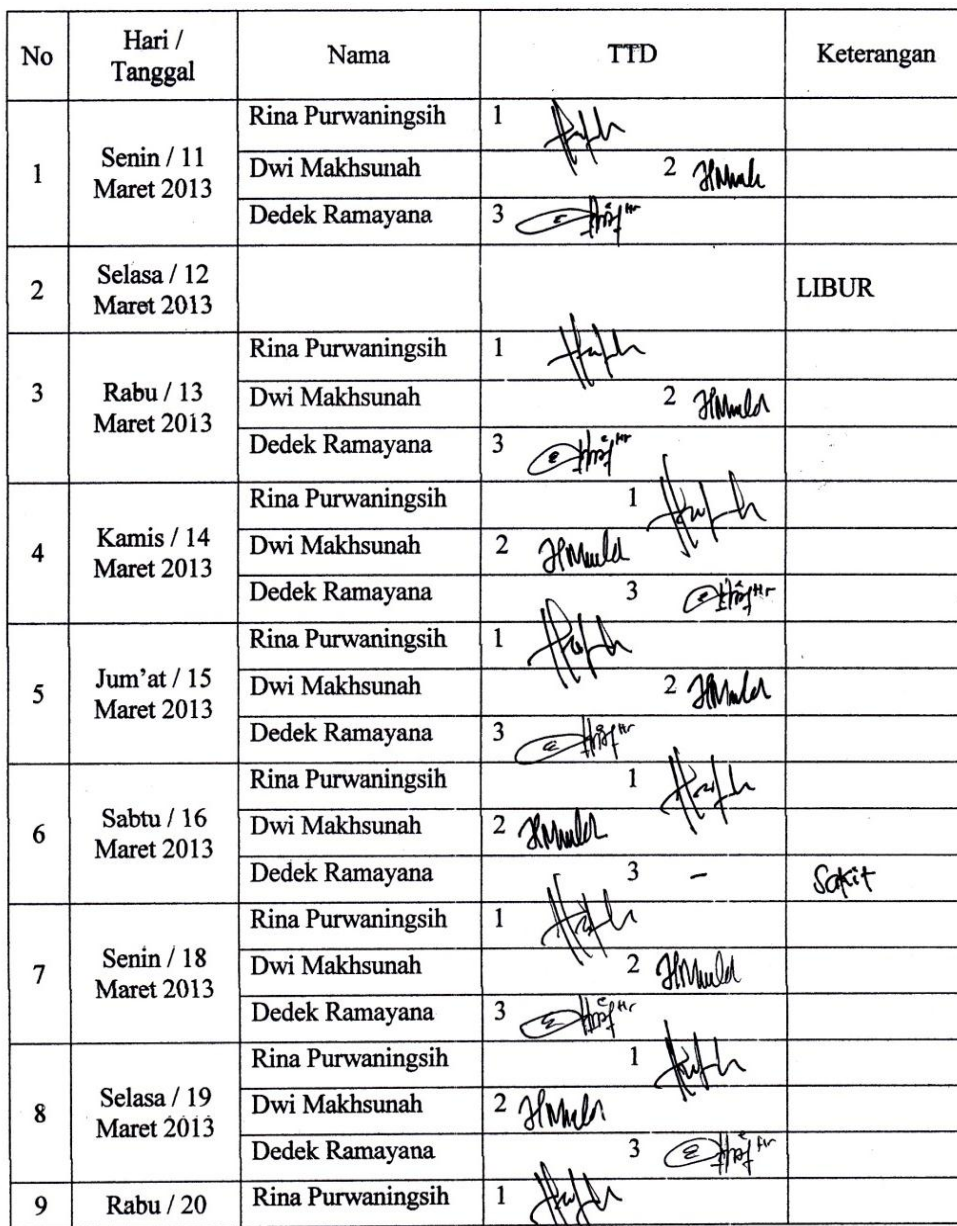 No Hari / Tanggal Nama TTD Keterangan
1 Senin / 11 Maret 2013 Rina Purwaningsih 1
Dwi Makhsunah 2
Dedek Ramayana 3
2 Selasa / 12 Maret 2013 LIBUR
3 Rabu / 13 Maret 2013 Rina Purwaningsih 1
Dwi Makhsunah 2
Dedek Ramayana 3
4 Kamis / 14 Maret 2013 Rina Purwaningsih 1
Dwi Makhsunah 2
Dedek Ramayana 3
5 Jum'at / 15 Maret 2013 Rina Purwaningsih 1
Dwi Makhsunah 2
Dedek Ramayana 3
6 Sabtu / 16 Maret 2013 Rina Purwaningsih 1
Dwi Makhsunah 2
Dedek Ramayana 3 - Sakit
7 Senin / 18 Maret 2013 Rina Purwaningsih 1
Dwi Makhsunah 2
Dedek Ramayana 3
8 Selasa / 19 Maret 2013 Rina Purwaningsih 1
Dwi Makhsunah 2
Dedek Ramayana 3
9 Rabu / 20 Rina Purwaningsih 1